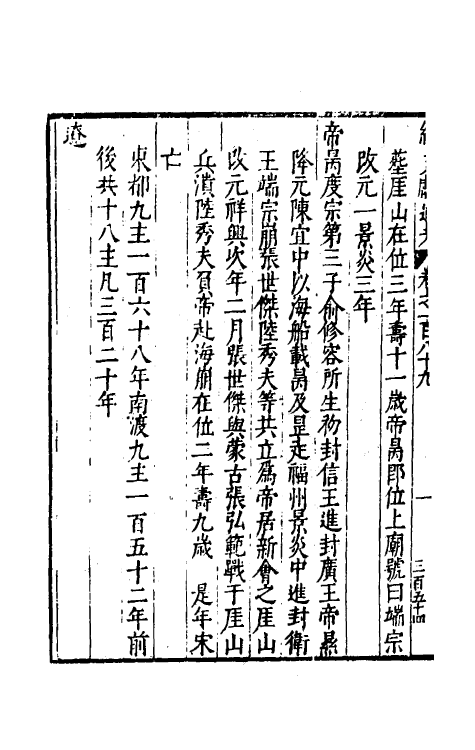 續文獻通考 卷之一百八十九 一 三百五十四
塟崖山在位三年壽十一歲帝昺即位上廟號曰端宗
改元一景炎三年
帝昺度宗第三子俞修容所生初封信王進封廣王帝㬎
降元陳宜中以海船載昺及昰走福州景炎中進封衛
王端宗崩張世傑陸秀夫等共立爲帝居新會之崖山
改元祥興次年二月張世傑與蒙古張弘範戰于崖山
兵潰陸秀夫負帝赴海崩在位二年壽九歲 是年宋
亡
東都九主一百六十八年南渡九主一百五十二年前
後共十八主凡三百二十年
遼